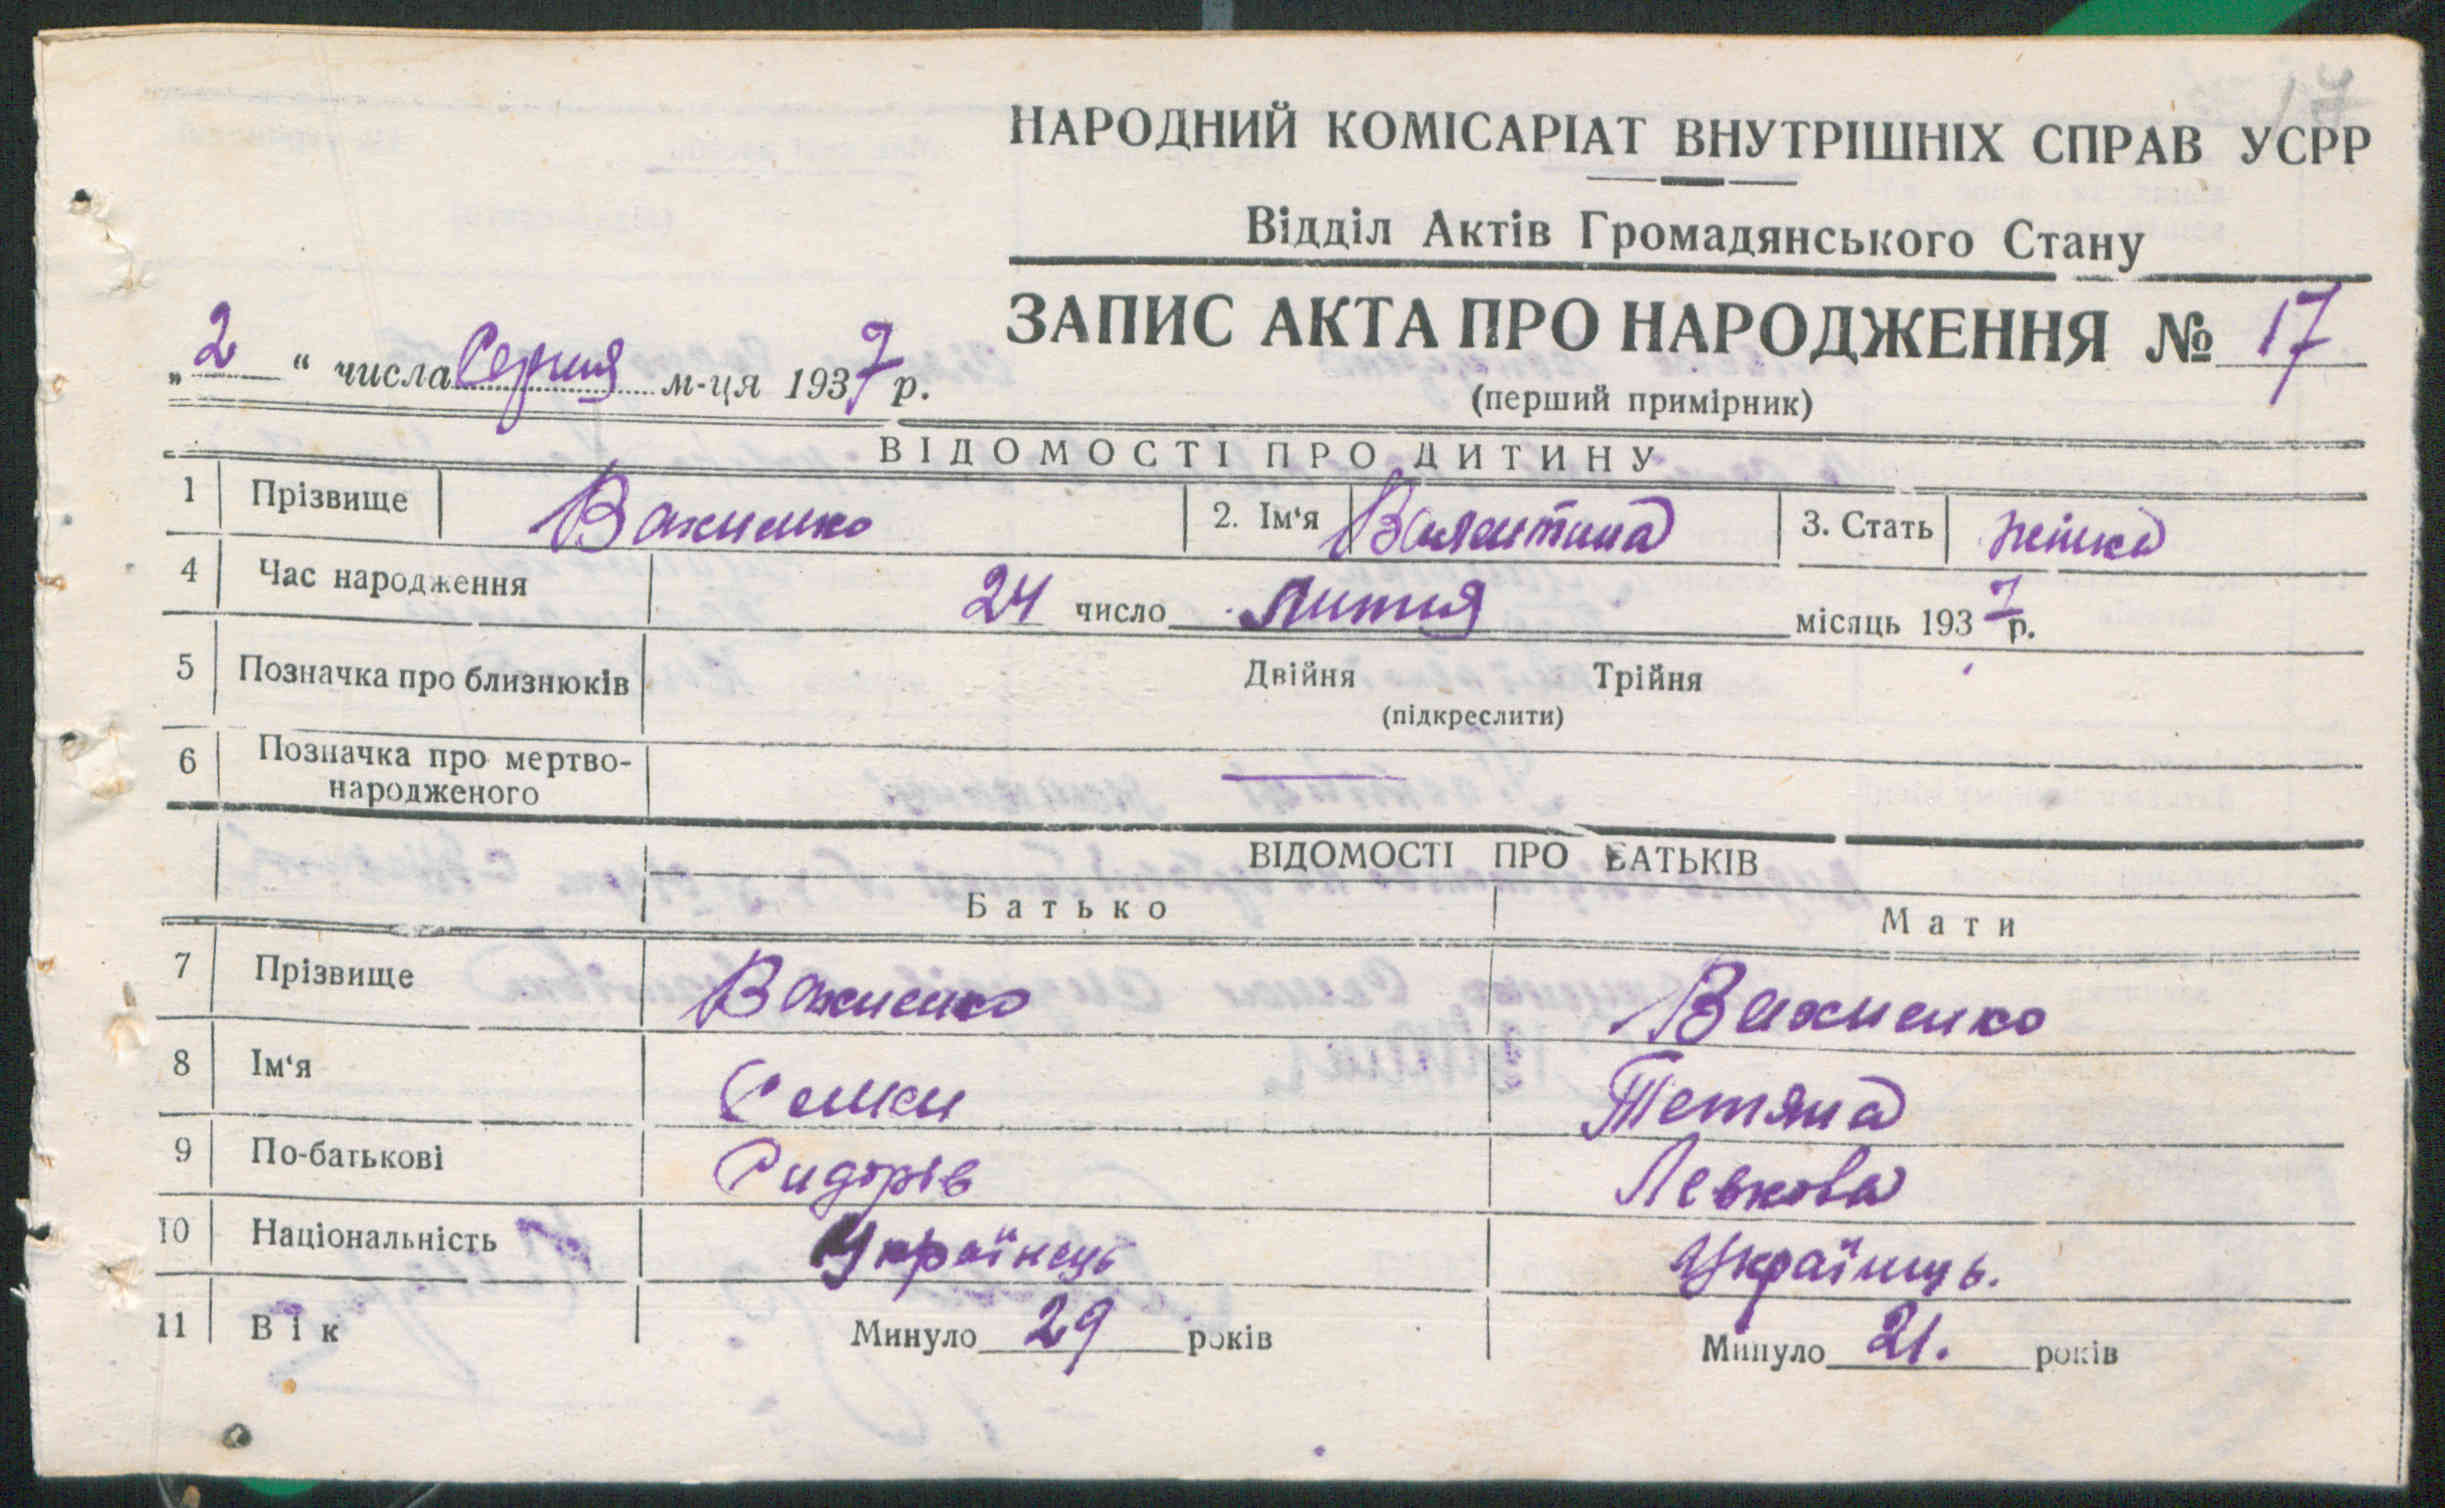 17
НАРОДНИЙ КОМІСАРІАТ ВНУТРІШНІХ СПРАВ УСРР
Відділ Актів Громадянського Стану
ЗАПИС АКТА ПРО НАРОДЖЕННЯ № 17
„2“ числа Серпня м-ця 1937 р.
(перший примірник)
ВІДОМОСТІ ПРО ДИТИНУ
1 Прізвище Важненко 2. Ім‘я Валентина 3. Стать жіноча
4 Час народження 24 число липня місяць 1937 р.
5 Позначка про близнюків Двійня Трійня
(підкреслити)
6 Позначка про мертво-
народженого —
ВІДОМОСТІ ПРО БАТЬКІВ
Батько Мати
7 Прізвище Важненко Важненко
8 Ім‘я Тетяна
9 По-батькові Сидорів Левкова
10 Національність Українець Українць.
11 Вік Минуло 29 років Минуло 21. років